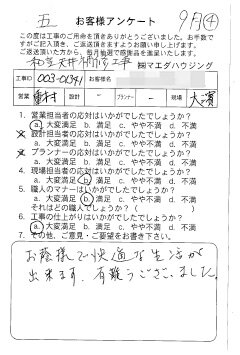 五 お客様アンケート 9月④
この度は工事のご用命を頂きありがとうございました。お手数で
すがご記入頂き、ご返送頂きますようお願い申し上げます。
ご返送頂いた方から、毎月抽選で感謝品を進呈いたします。
和室 工事 ㈱マエダハウジング
工事ID 003-0041 お客様名
営業 設計 - プランナー - 現場 大濱
1. 営業担当者の応対はいかがでしたでしょうか?
a. 大変満足 b. 満足 c. やや不満 d. 不満
2. 設計担当者の応対はいかがでしたでしょうか?
a. 大変満足 b. 満足 c. やや不満 d. 不満
3. プランナーの応対はいかがでしたでしょうか?
a. 大変満足 b. 満足 c. やや不満 d. 不満
4. 現場担当者の応対はいかがでしたでしょうか?
a. 大変満足 b. 満足 c. やや不満 d. 不満
5. 職人のマナーはいかがでしたでしょうか?
a. 大変満足 b. 満足 c. やや不満 d. 不満
それはどの職人でしょうか? ( )
6. 工事の仕上がりはいかがでしたでしょうか?
a. 大変満足 b. 満足 c. やや不満 d. 不満
7. その他、ご意見・ご要望をお書き下さい。
お陰様で快適な生活が
出来ます、有難うございました。